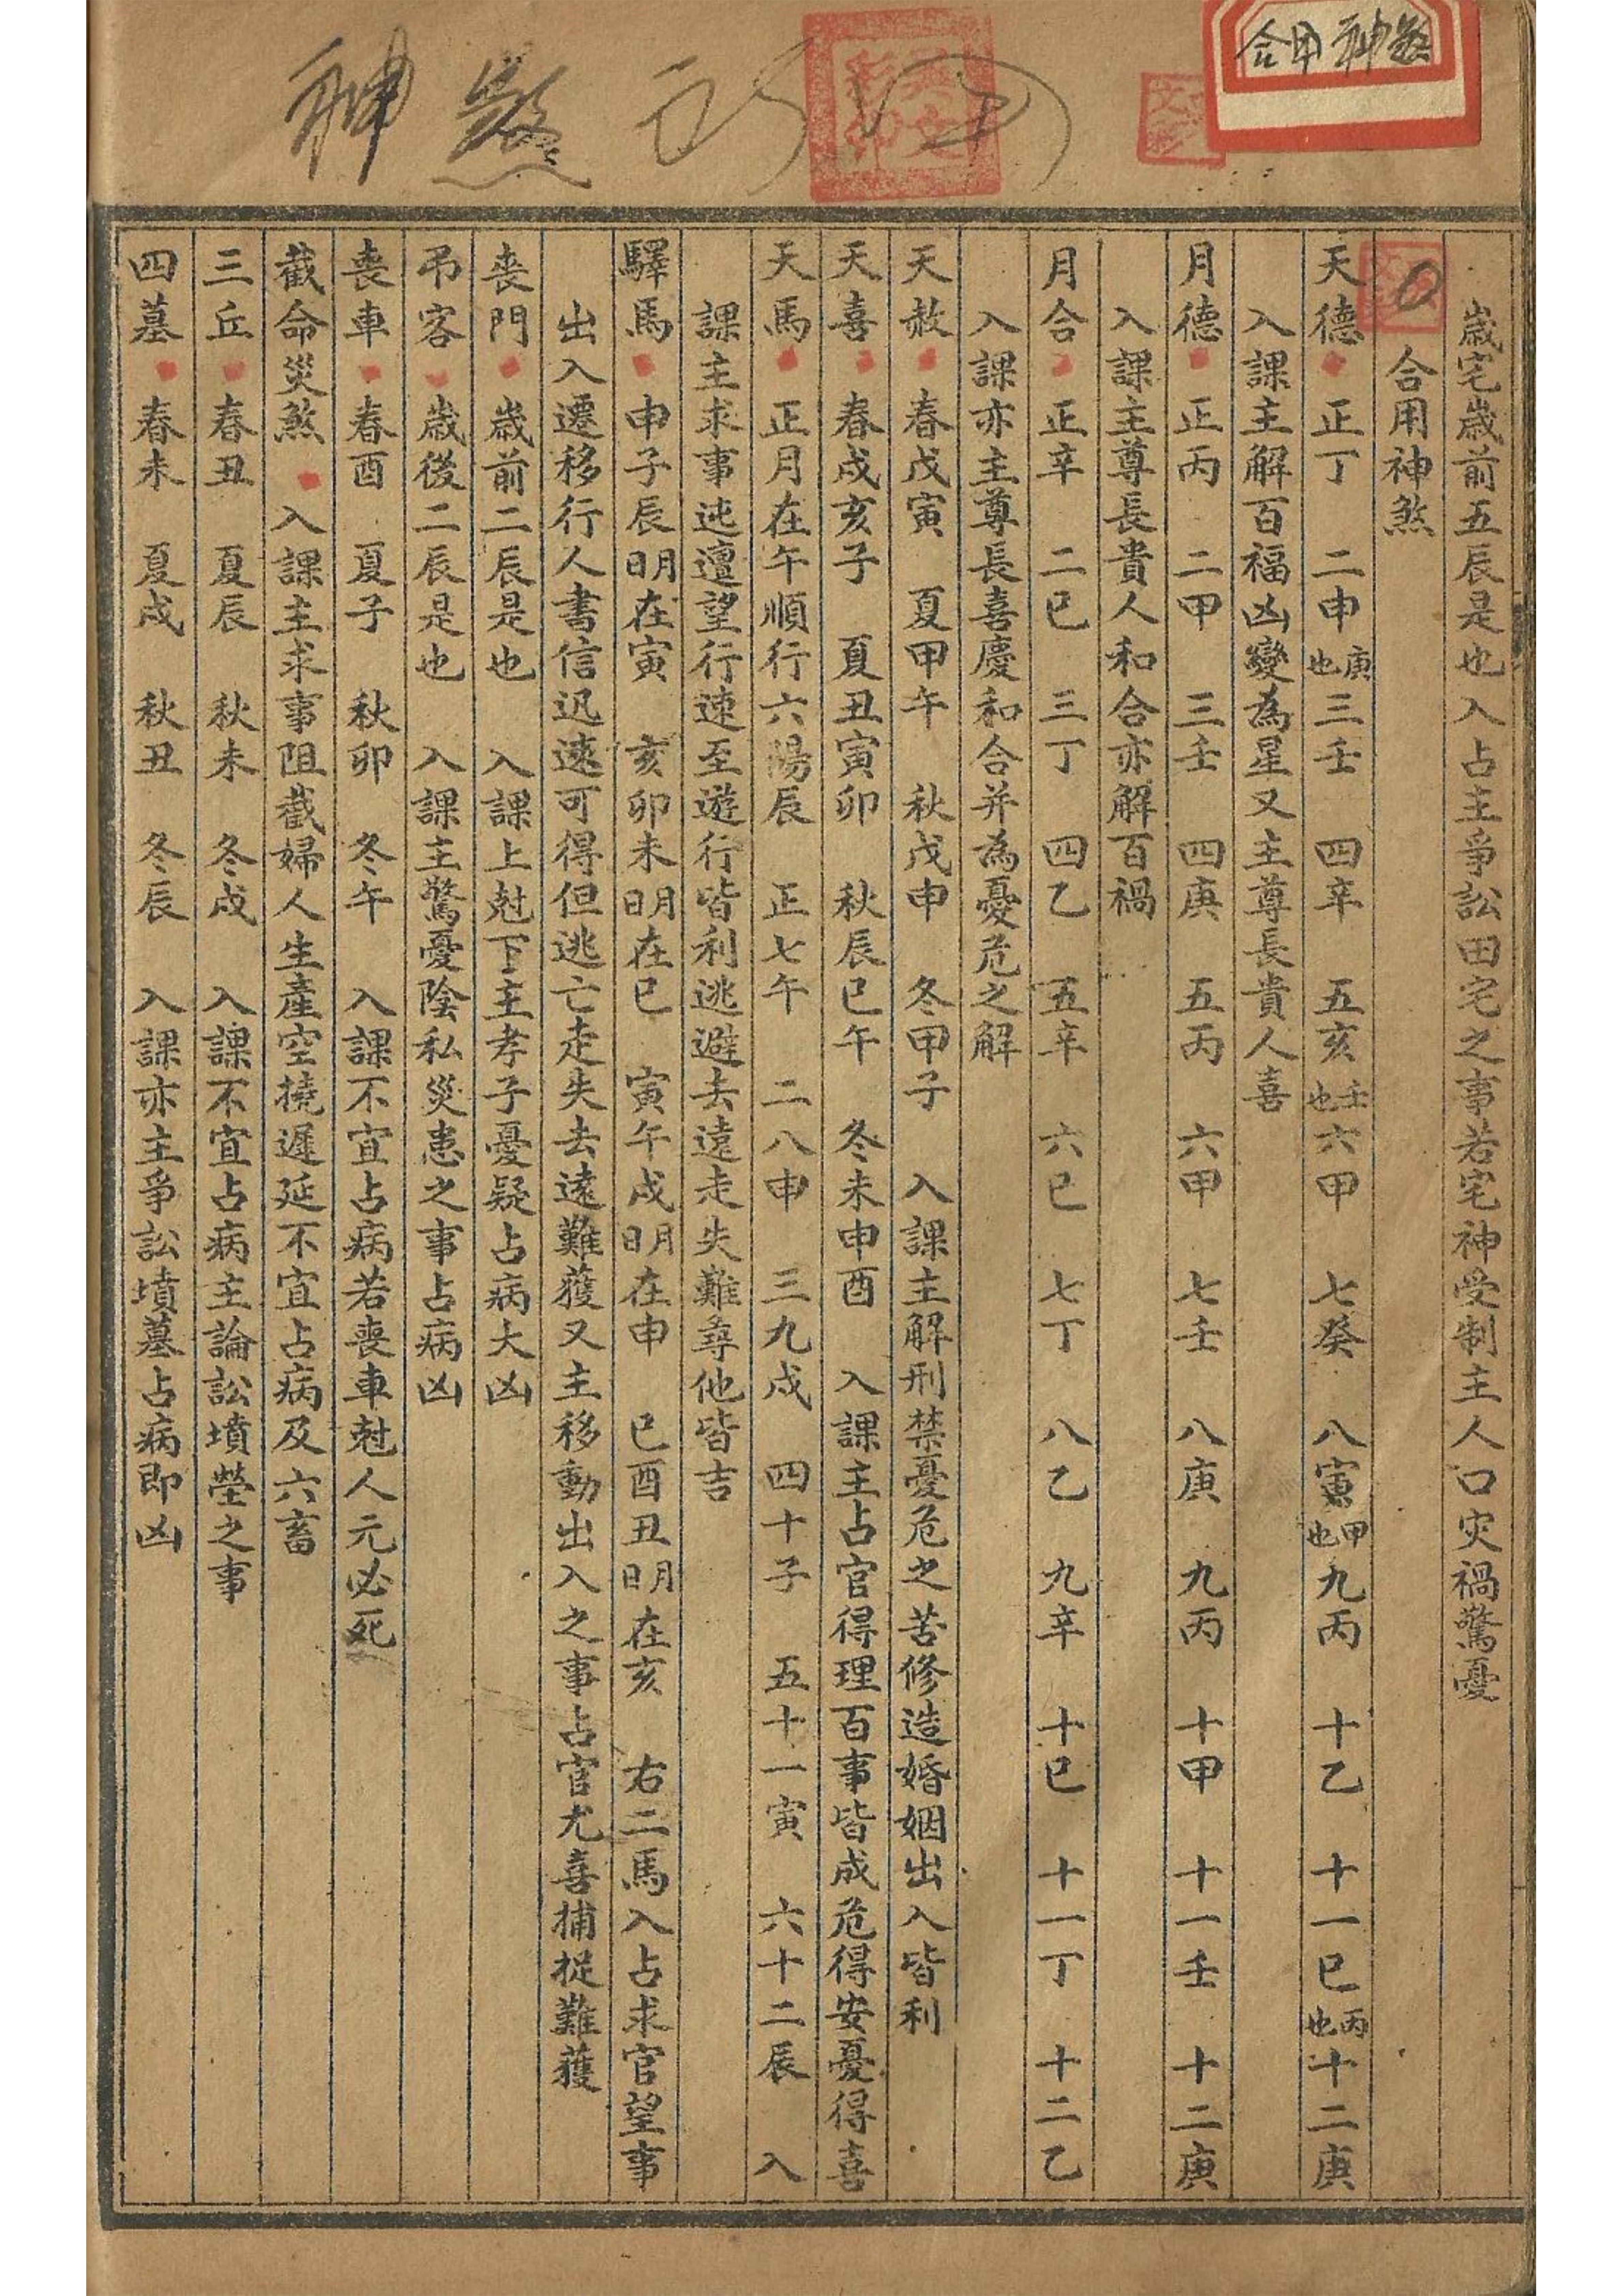 合用神煞
神煞
歲宅歲前五辰是也入占主爭訟田宅之事若宅神受制主人口灾禍驚憂
合用神煞
天德 正丁 二申庚也 三壬 四辛 五亥壬也 六甲 七癸 八寅甲也 九丙 十乙 十一巳丙也 十二庚
入課主解百福凶變為星又主尊長貴人喜
月德 正丙 二甲 三壬 四庚 五丙 六甲 七壬 八庚 九丙 十甲 十一壬 十二庚
入課主尊長貴人和合亦解百禍
月合 正辛 二巳 三丁 四乙 五辛 六巳 七丁 八乙 九辛 十巳 十一丁 十二乙
入課亦主尊長喜慶和合并為憂危之解
天赦 春戊寅 夏甲午 秋戊申 冬甲子 入課主解刑禁憂危之苦修造婚姻出入皆利
天喜 春戌亥子 夏丑寅卯 秋辰巳午 冬未申酉 入課主占官得理百事皆成危得安憂得喜
天馬 正月在午順行六陽辰 正七午 二八申 三九戌 四十子 五十一寅 六十二辰 入
課主求事迍邅望行速至遊行皆利逃避去遠走失難尋他皆吉
驛馬 申子辰明在寅 亥卯未明在巳 寅午戌明在申 巳酉丑明在亥 右二馬入占求官望事
出入遷移行人書信迅速可得但逃亡走失去遠難獲又主移動出入之事占官尤喜捕捉難獲
喪門 歲前二辰是也 入課上尅下主孝子憂疑占病大凶
吊客 歲後二辰是也 入課主驚憂陰私災患之事占病凶
喪車 春酉 夏子 秋卯 冬午 入課不宜占病若喪車尅人元必死
截命災煞 入課主求事阻截婦人生產空撓遲延不宜占病及六畜
三丘 春丑 夏辰 秋未 冬戌 入課不宜占病主論訟墳塋之事
四墓 春未 夏戌 秋丑 冬辰 入課亦主爭訟墳墓占病即凶